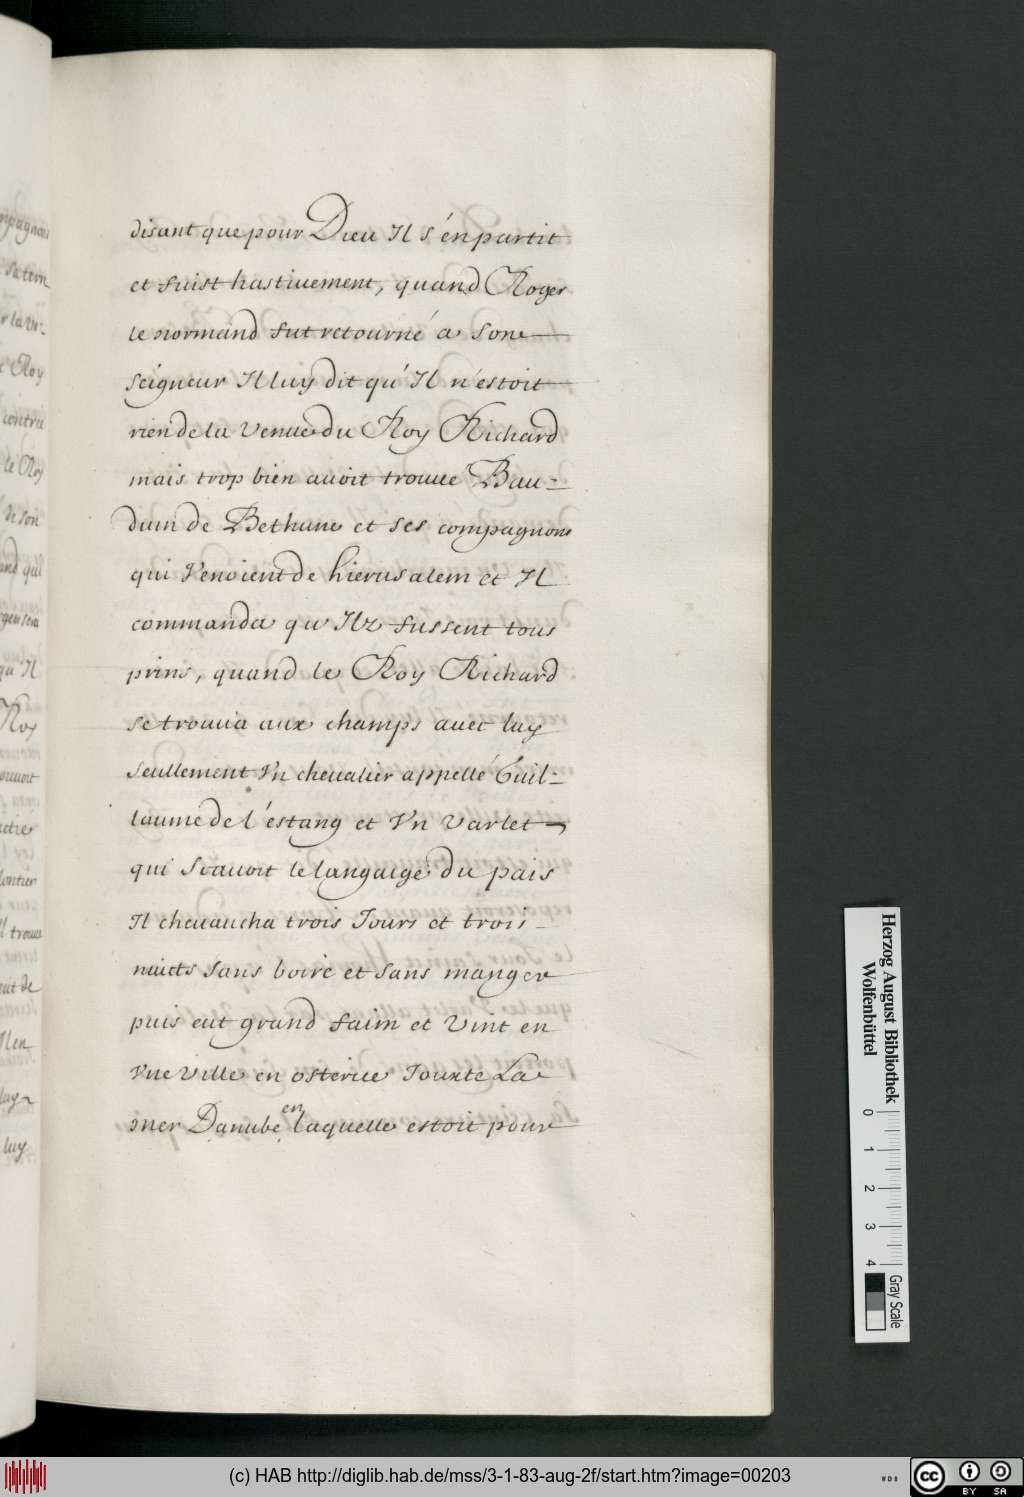 disant que pour Dieu Il s'en partit
et fuist hastiuement, quand Roger
le normand fut retourné a son
seigneur Il luy dit qu'Il n'estoit
rien de la venue du Roy Richard
mais trop bien auoit trouue Bau=
duin de Bethune et ses compagnons
qui venoient de hierusalem et Il
commanda qu'Ilz fussent tous
prins, quand le Roy Richard
se trouua aux champs auec luy
seullement vn cheualier appellé Guil=
laume de l'estang et vn varlet
qui scauoit le langaige du pais
Il cheuaucha trois Jours et trois
nuicts sans boire et sans manger
puis eut grand faim et vint en
vne ville en osterice Jouxte La
mer Danube en laquelle estoit pour
Herzog August Bibliothek
Wolfenbüttel
0 1 2 3 4
Gray Scale
(c) HAB http://diglib.hab.de/mss/3-1-83-aug-2f/start.htm?image=00203
WDB
cc BY SA